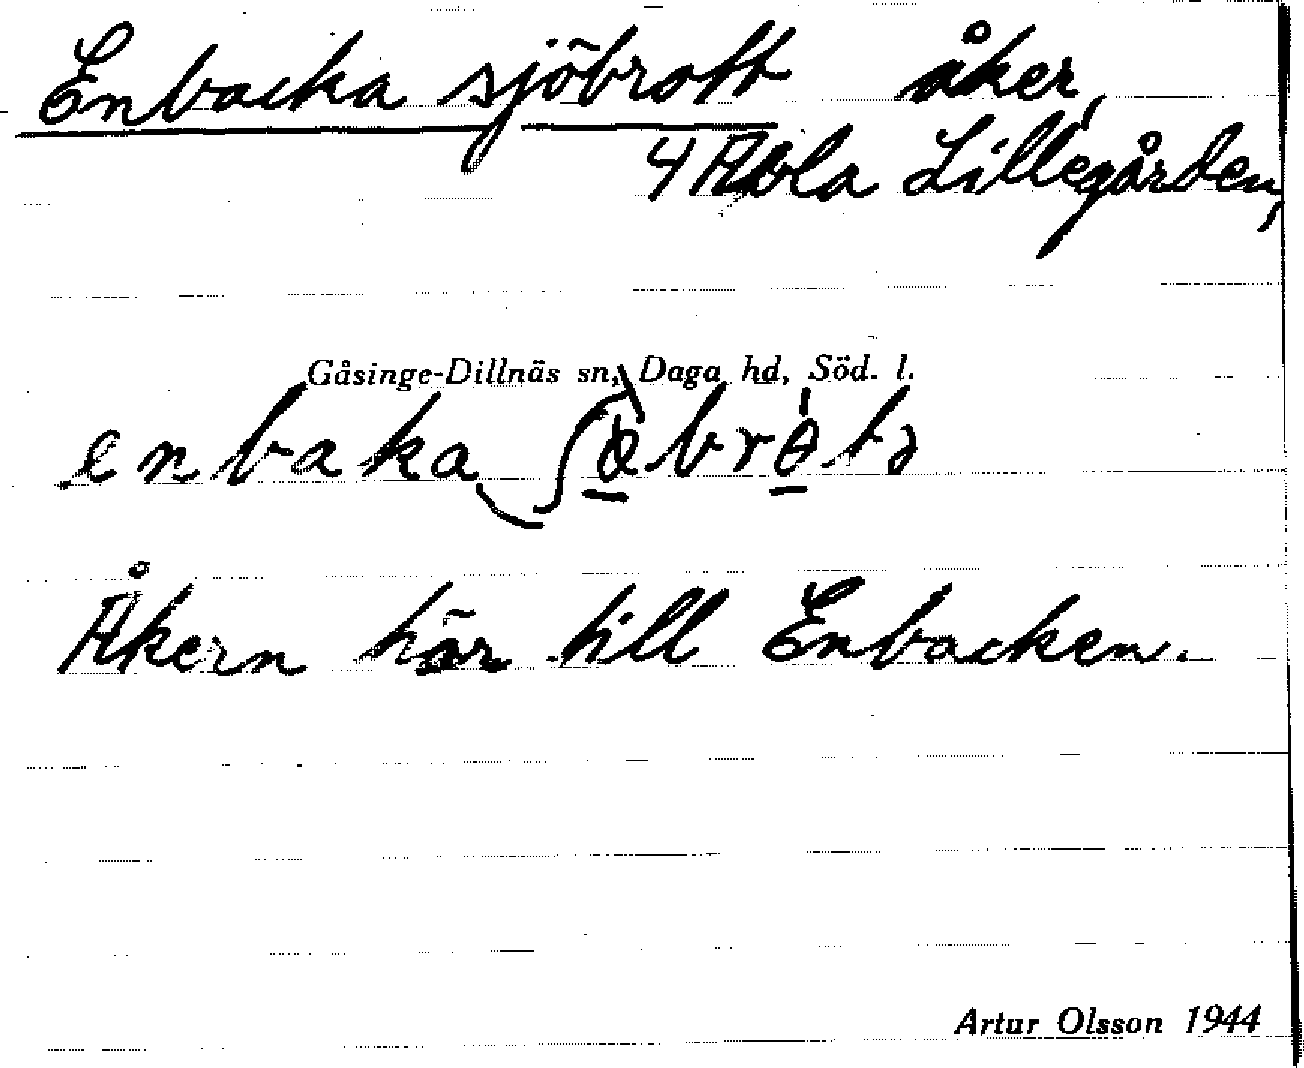 Enbacka sjöbrott åker,
4 Abla Lillegården,
Gåsinge-Dillnäs sn, Daga hd, Söd. l.
enbaka
Åkern hör till Enbacken.
Artur Olsson 1944